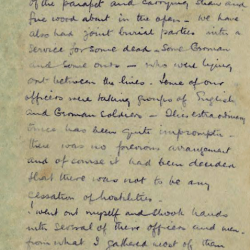 of the parapet and carrying straw and
fire wood about in the open – we have
also had joint burial parties into a
service for some dead – some German
and some ours – who were lying
out between the lines. Some of our
officers were taking groups of English
and German soldiers – This extraordinary
truce has been quite impromptu –
there was no previous arrangement
and of course it had been decided
that there was not to be any
cessation of hostilities.
I went out myself and shook hands
with several of their officers and men
from what I gathered most of them